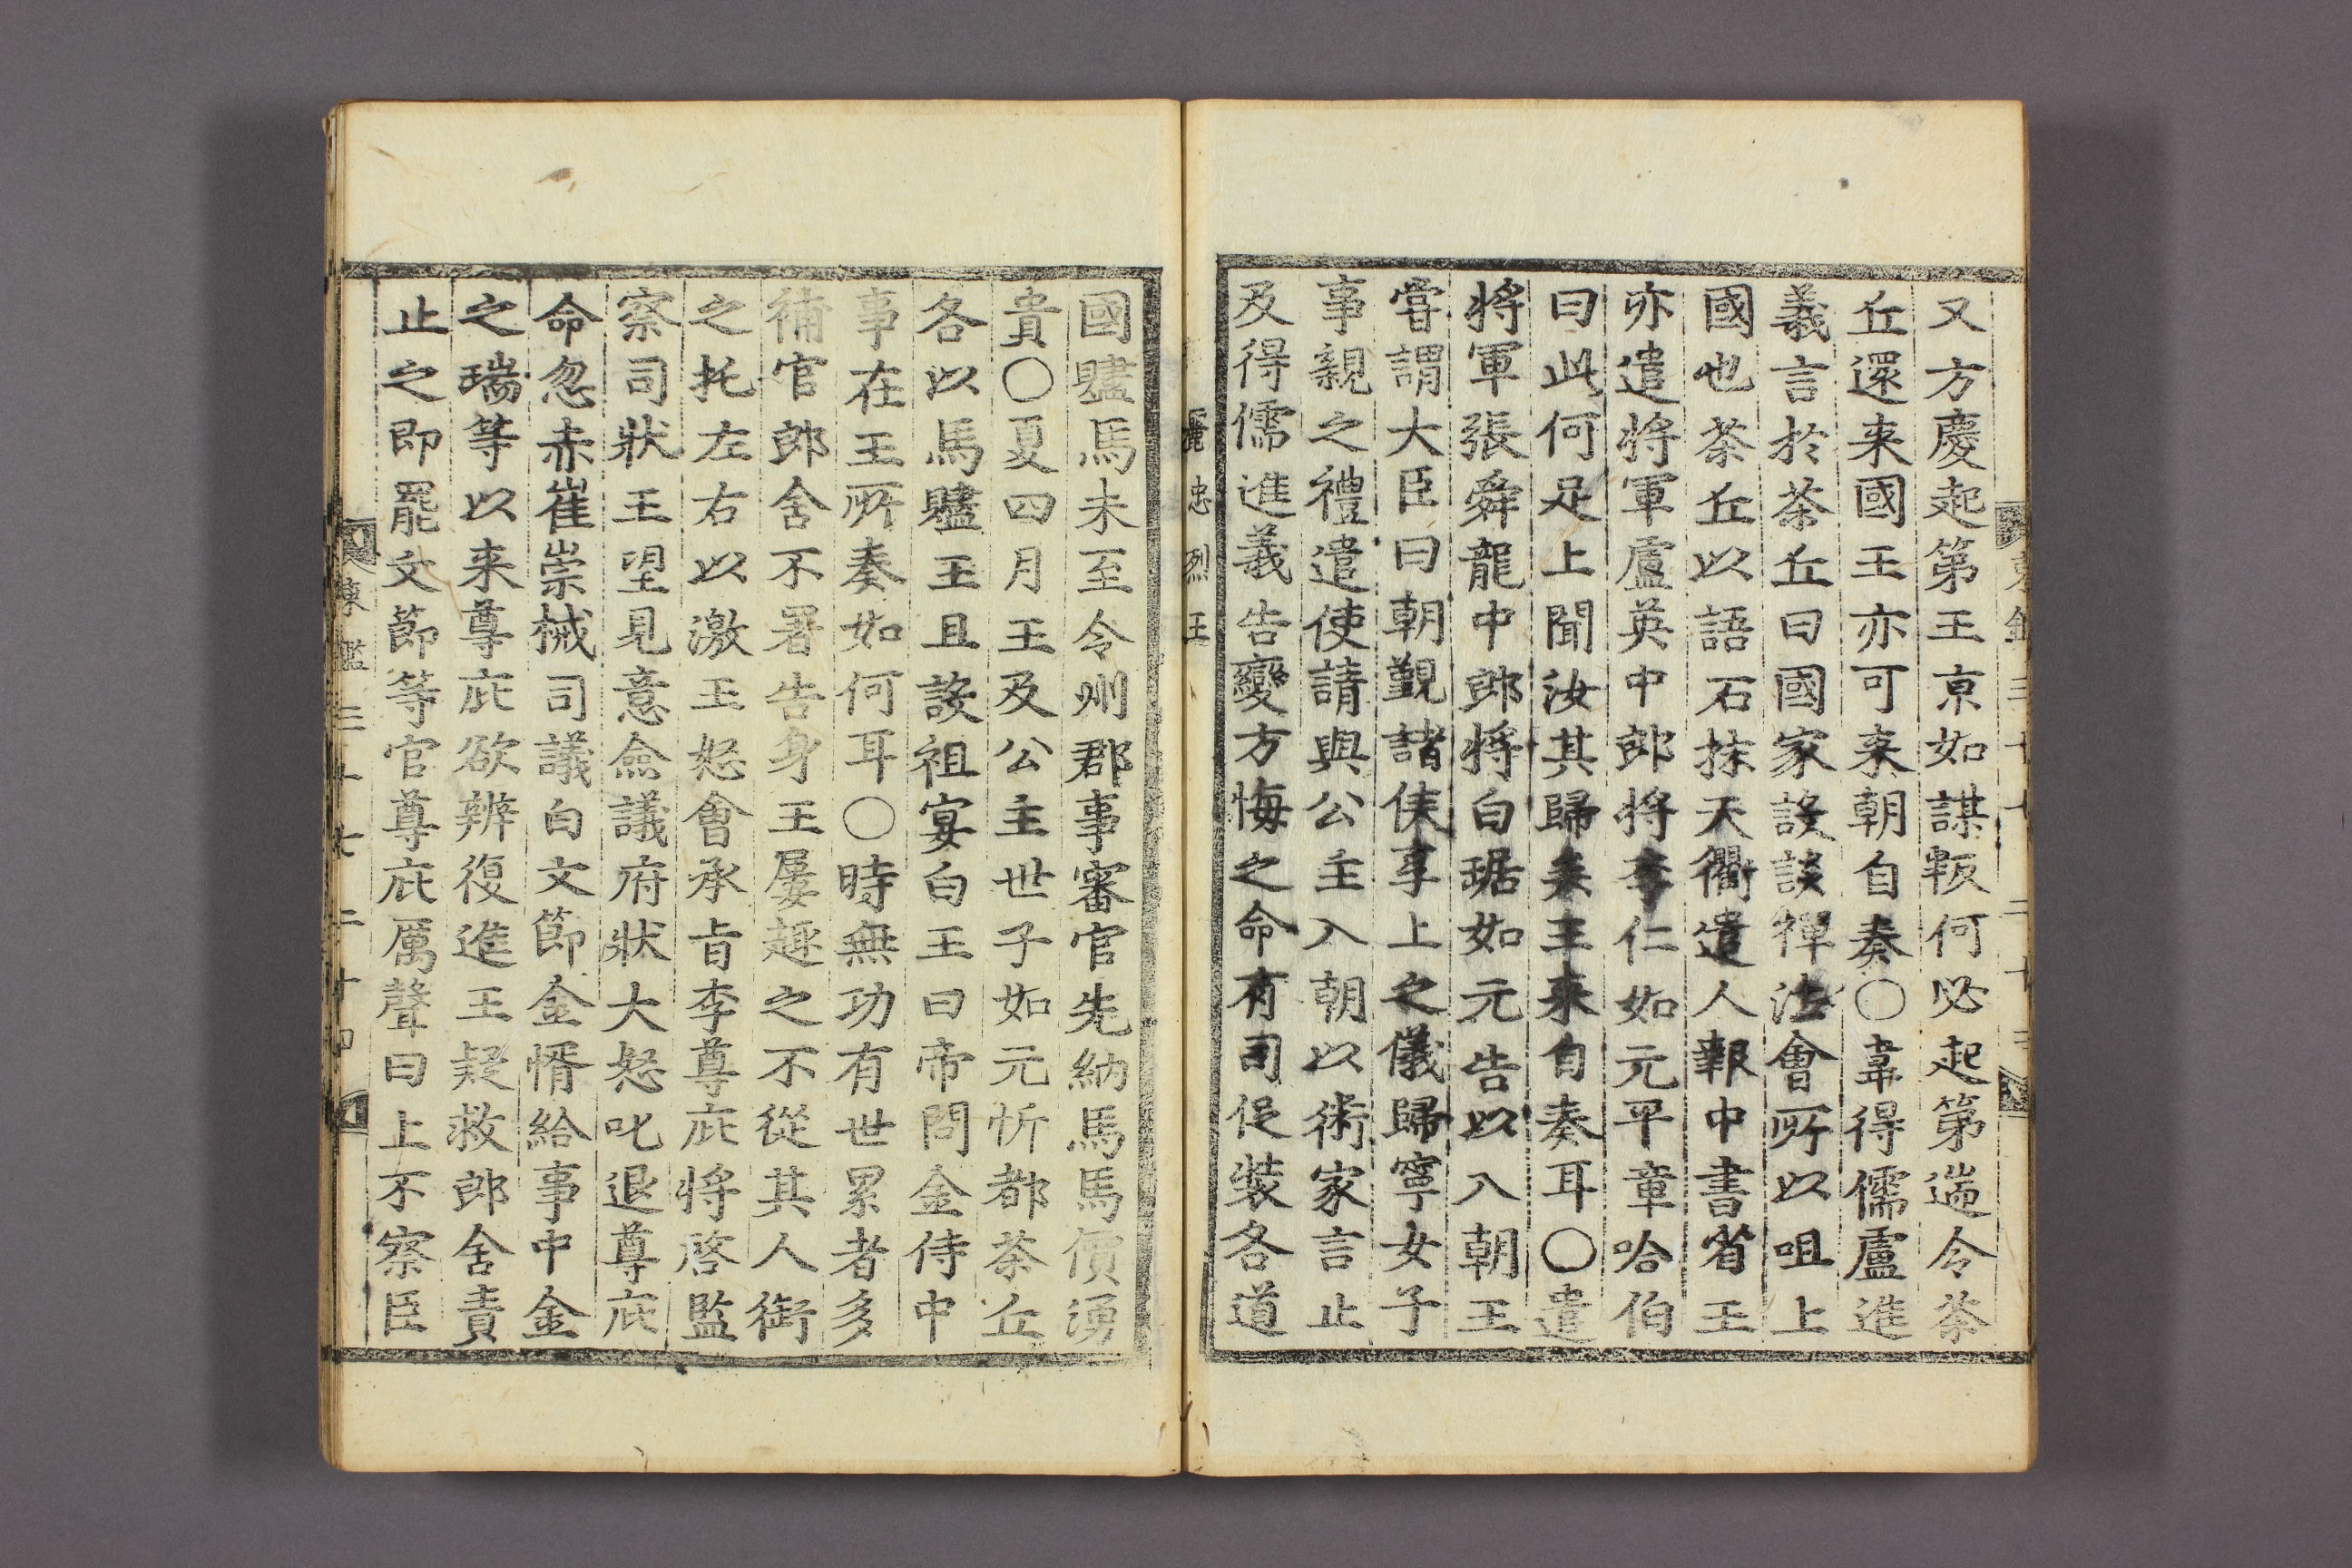 又方慶起第王京如謀叛何必起第遄令茶
丘還来國王亦可来朝自奏○韋得儒盧進
義言於茶丘曰國家設談禪法會所以咀上
國也茶丘以語石抹天衢遣人報中書省王
亦遣將軍盧英中郎將李仁如元平章哈伯
曰此何足上聞汝其歸矣王来自奏耳○遣
將軍張舜龍中郎將白琚如元告以入朝王
嘗謂大臣曰朝覲諸侯享上之儀歸寧女子
事親之禮遣使請與公主入朝以術家言止
及得儒進義告變方悔之命有司促裝各道
麗忠烈王
國贐馬未至令州郡事審官先納馬馬價湧
貴○夏四月王及公主世子如元忻都茶丘
各以馬贐王且設祖宴白王曰帝問金侍中
事在王所奏如何耳○時無功有世累者多
補官郎舍不署告身王屢趣之不從其人銜
之托左右以激王怒會承旨李尊庇将啓監
察司狀王望見意僉議府狀大怒叱退尊庇
命忽赤崔崇械司議白文節金㥠給事中金
之瑞等以来尊庇欲辨復進王疑救郎舍責
止之即罷文節等官尊庇厲聲曰上不察臣
東鑑三十七 二十四